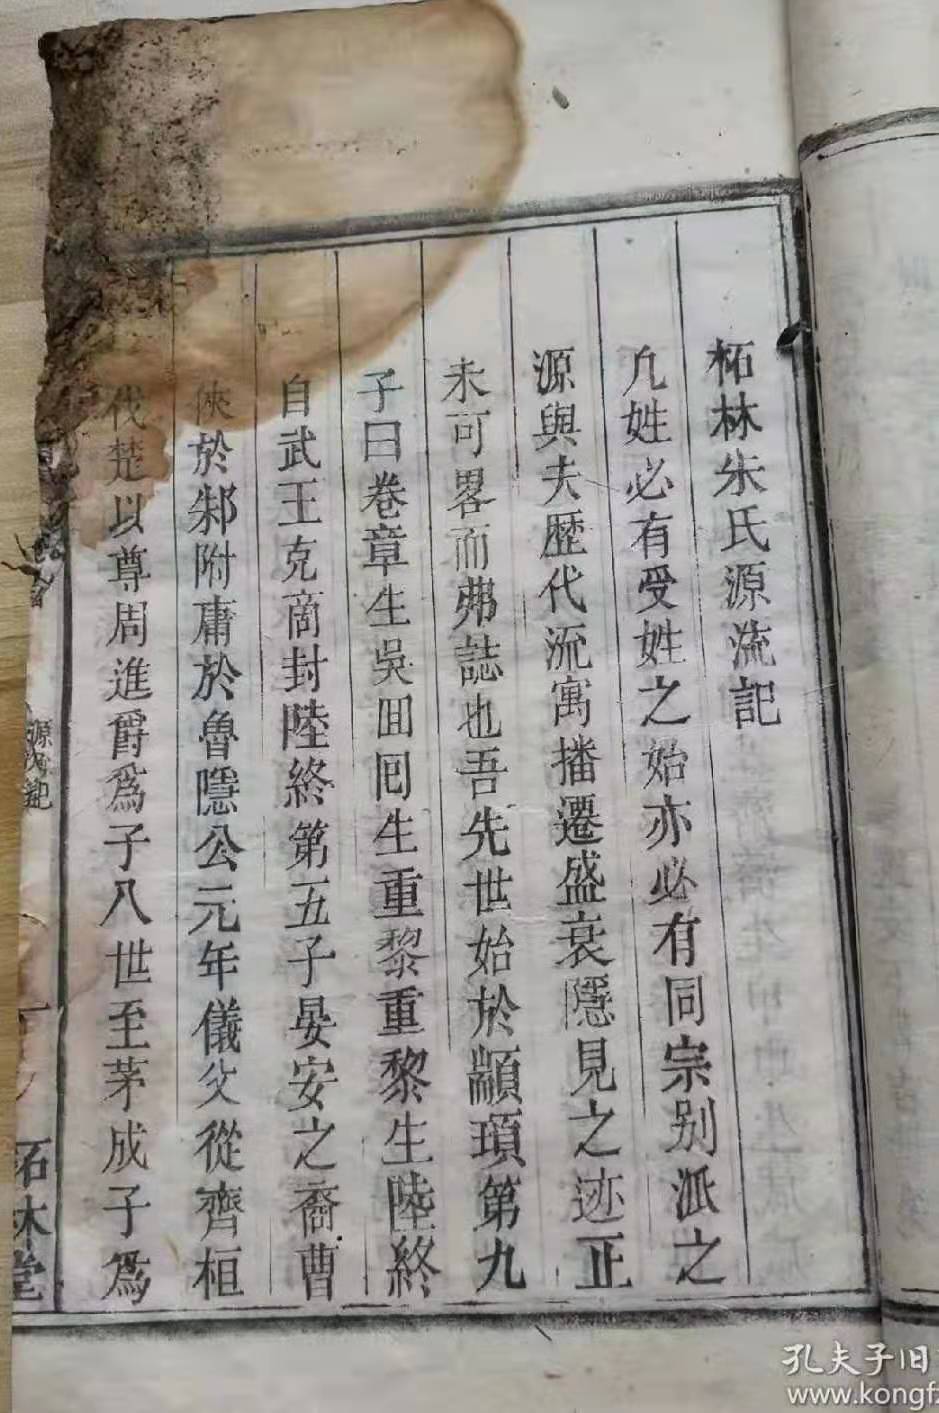 柘林朱氏源流記
凡姓必有受姓之始亦必有同宗别派之
源與夫歴代流寓播遷盛衰隱見之迹正
未可畧而弗誌也吾先世始於顓頊第九
子曰卷章生吳囬囘生重黎重黎生陸終
自武王克商封陸終第五子晏安之裔曹
俠於邾附庸於魯隱公元年儀父從齊桓
伐楚以尊周進爵為子八世至茅成子為
源流記
柘林堂
孔夫子旧
www.kongfz